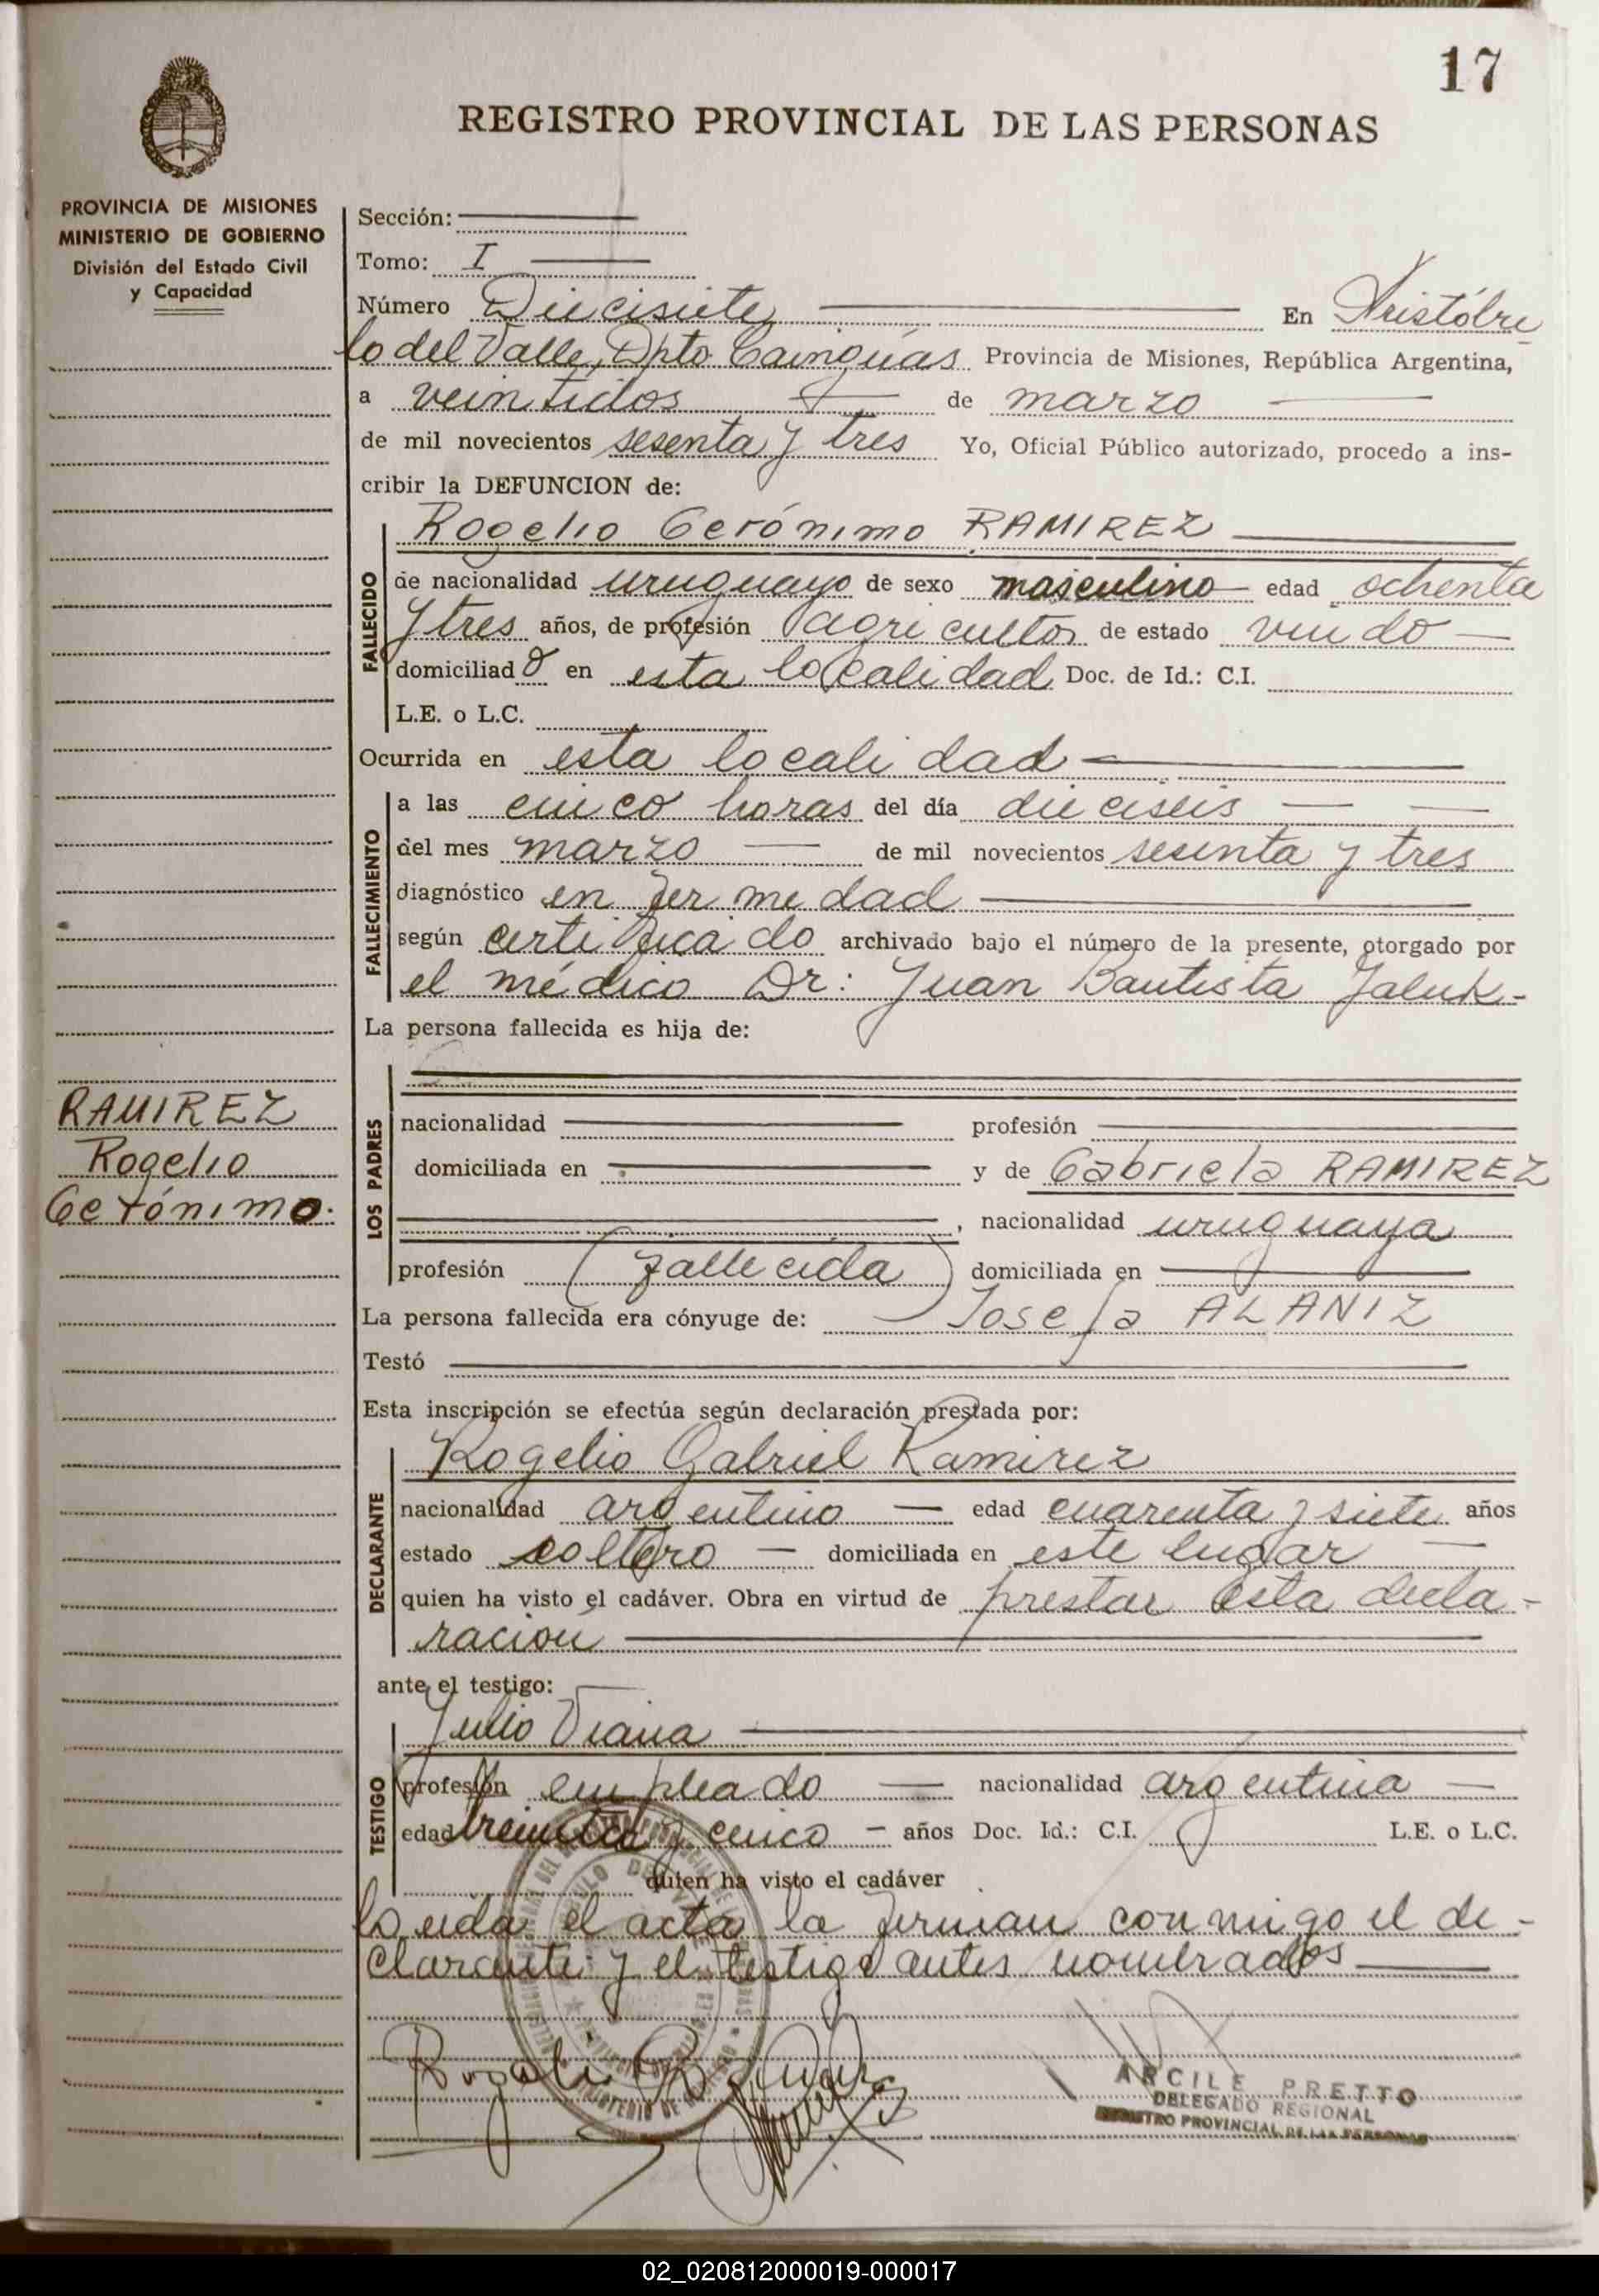 17
REGISTRO PROVINCIAL DE LAS PERSONAS
PROVINCIA DE MISIONES
MINISTERIO DE GOBIERNO
División del Estado Civil
y Capacidad
Sección:
Tomo: I
Número Diecisiete En Aristóbu
lo del Valle, Dpto Cainguas Provincia de Misiones, República Argentina,
a veintidos de marzo
de mil novecientos sesenta y tres Yo, Oficial Público autorizado, procedo a ins-
cribir la DEFUNCION de:
Rogelio Gerónimo RAMIREZ
FALLECIDO
de nacionalidad uruguayo de sexo masculino edad ochenta
y tres años, de profesión agricultor de estado viudo
domiciliado en esta localidad Doc. de Id.: C.I.
L.E. o L.C.
Ocurrida en esta localidad
FALLECIMIENTO
a las cinco horas del día dieciseis
del mes marzo de mil novecientos sesenta y tres
diagnóstico enfermedad
según certificado archivado bajo el número de la presente, otorgado por
el médico Dr: Juan Bautista Jaluk-
La persona fallecida es hija de:
RAMIREZ
Rogelio
Gerónimo.
LOS PADRES
nacionalidad profesión
domiciliada en y de Gabriela RAMIREZ
, nacionalidad uruguaya
profesión (fallecida) domiciliada en
La persona fallecida era cónyuge de: Josefa ALANIZ
Testó
Esta inscripción se efectúa según declaración prestada por:
Rogelio Gabriel Ramirez
DECLARANTE
nacionalidad argentino edad cuarenta y siete años
estado soltero domiciliada en este lugar
quien ha visto el cadáver. Obra en virtud de prestar esta decla-
ración
ante el testigo:
Julio Viana
TESTIGO
profesión empleado nacionalidad argentina
edad treinta y cinco años Doc. Id.: C.I. L.E. o L.C.
quien ha visto el cadáver
Leida el acta la firman conmigo el de-
clarante y el testigo antes nombrados
ARCILE PRETTO
DELEGADO REGIONAL
REGISTRO PROVINCIAL DE LAS PERSONAS
02_020812000019-000017